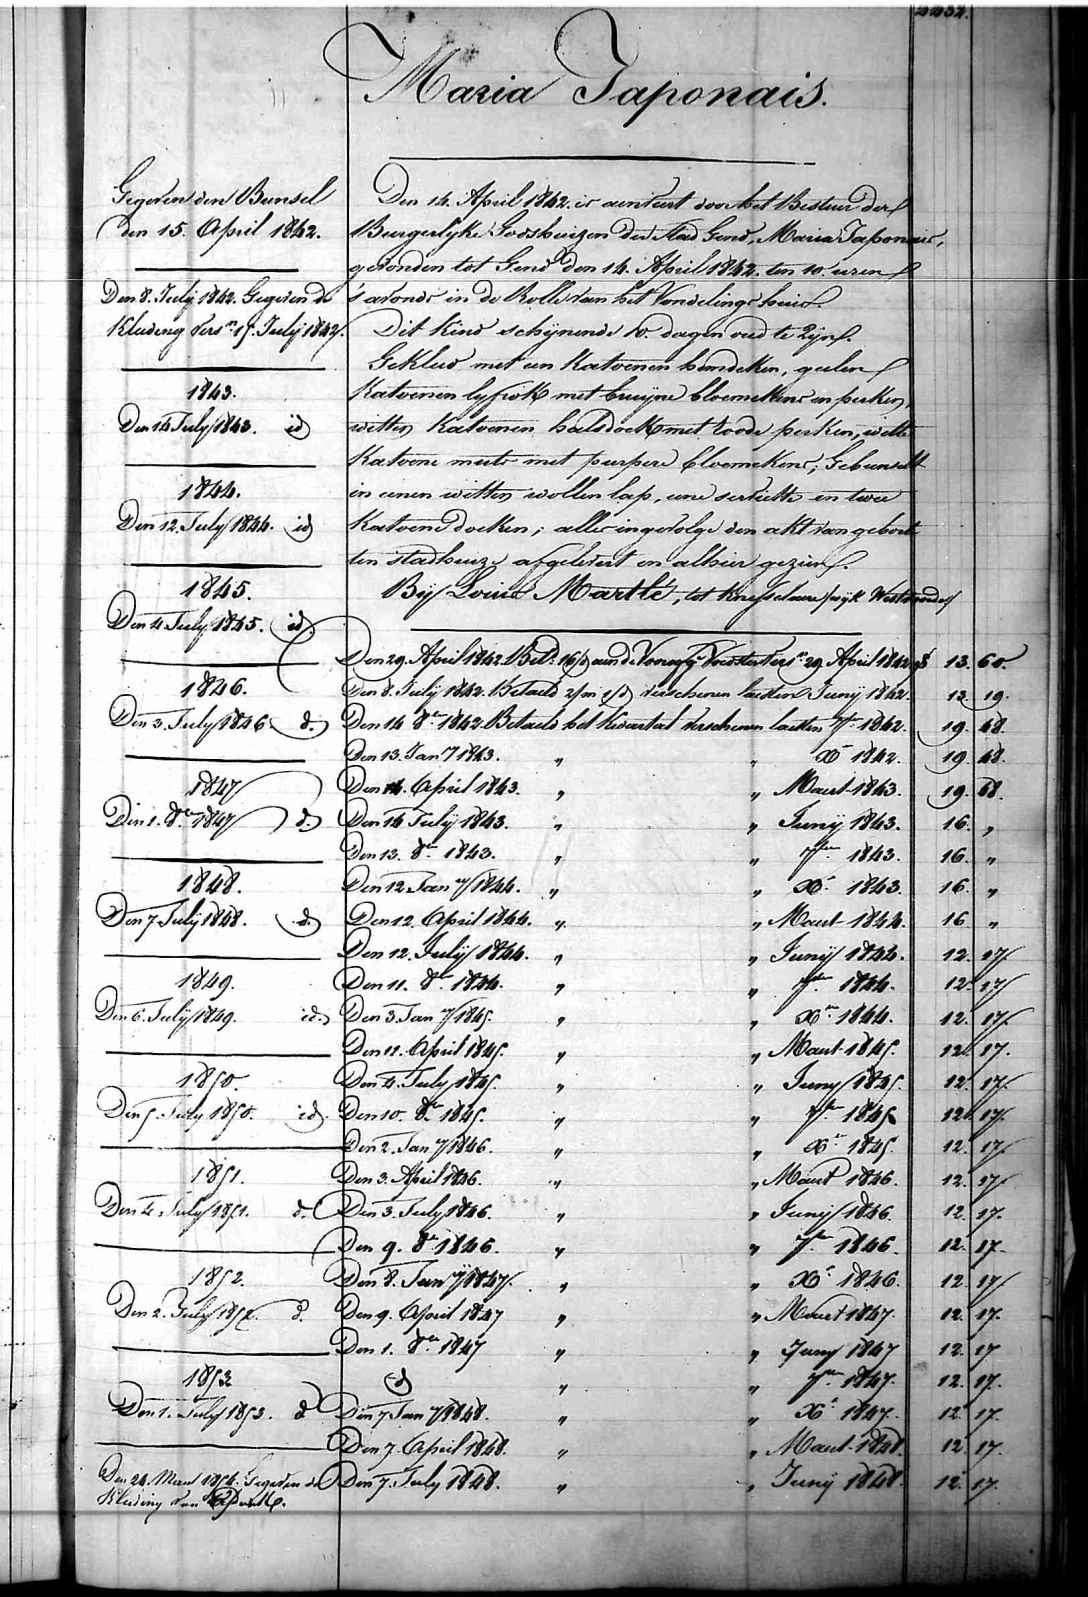 Maria Japonais.
Gegeven den Bunsel
den 15. April 1842.
Den 8. July 1842. Gegeven de
Kleding vers.n 15 July 1842.
1843.
Den 14 July 1843. id
1844.
Den 12. July 1844. id
1845.
Den 4 July 1845. id.
1846.
Den 3. July 1846 d.
1847
Den 1. 8.er 1847 d.
1848.
Den 7 July 1848. d.
1849.
Den 6. July 1849. id.
1850.
Den 5. July 1850. id.
1851.
Den 4. July 1851. d.
1852.
Den 2. July 1852. d.
1853
Den 1. July 1853. d
Den 24. Meert 1854. Gegeven de
Kleding van
Den 14. April 1842. is aenveert door het Bestuer der
Burgerlyke Godshuizen der Stad Gend, Maria Japonais,
gevonden tot Gend den 14. April 1842. ten 10. uren
's avonds in de Rolle van het Vondelingshuis.
Dit Kind schynende 10. dagen oud te Zyn.
Gekleed met een Katoenen hemdeken, geelen
Katoenen lyfrok met bruyne bloemekens en perken,
witten Katoenen halsdoek met roode perken, witte
Katoene muts met purpere bloemekens; Gebunselt
in eenen witten wollen lap, eene serviette en twee
Katoene doeken; alles ingevolge den akt van geboorte
ten stadhuize afgelevert en alhier gezien.
Bij Louise Martlé, tot Knesselaere wyk Westvoorde
Den 29. April 1842. Bet. 16/ aen de Voorz. Voedster vers.n 29 April 1842 13. 60.
Den 8. July 1842. Betaeld 2/m 1/ verschenen laetsten Juny 1842. 13 19.
Den 14 8.er 1842. Betaeld het Kwartael verschenen laetsten 7.r 1842. 19. 48.
Den 13. Jan.y 1843. " " X.r 1842. 19 48.
Den 14. April 1843. " " Maert 1843. 19. 48.
Den 14 July 1843. " " Juny 1843. 16. "
Den 13. 8.er 1843. " " 7.ber 1843. 16. "
Den 12 Jan.y 1844. " " X.r 1843. 16. "
Den 12. April 1844. " " Maert 1844. 16 "
Den 12. July 1844. " " Juny 1844. 12. 17
Den 11. 8.er 1844. " " 7.ber 1844. 12. 17
Den 3. Jan.y 1845. " " X.er 1844. 12. 17.
Den 11. April 1845. " " Maert 1845. 12. 17.
Den 4. July 1845. " " Juny 1845. 12. 17.
Den 10. 8.er 1845. " " 7.ber 1845 12. 17.
Den 2. Jan.y 1846. " " X.r 1845. 12. 17.
Den 3. April 1846. " " Maert 1846. 12. 17.
Den 3. July 1846. " " Juny 1846 12. 17.
Den 9. 8.er 1846. " " 7.ber 1846. 12. 17.
Den 8. Jan.y 1847. " " X.r 1846. 12. 17
Den 9. April 1847 " " Maert 1847. 12. 17.
Den 1. 8.er 1847 " " Juny 1847 12. 17
d " " 7.ber 1847. 12. 17.
Den 7 Jan.y 1848. " " X.r 1847. 12 17.
Den 7. April 1848. " " Maert 1848. 12 17.
Den 7. July 1848. " " Juny 1848. 12. 17.